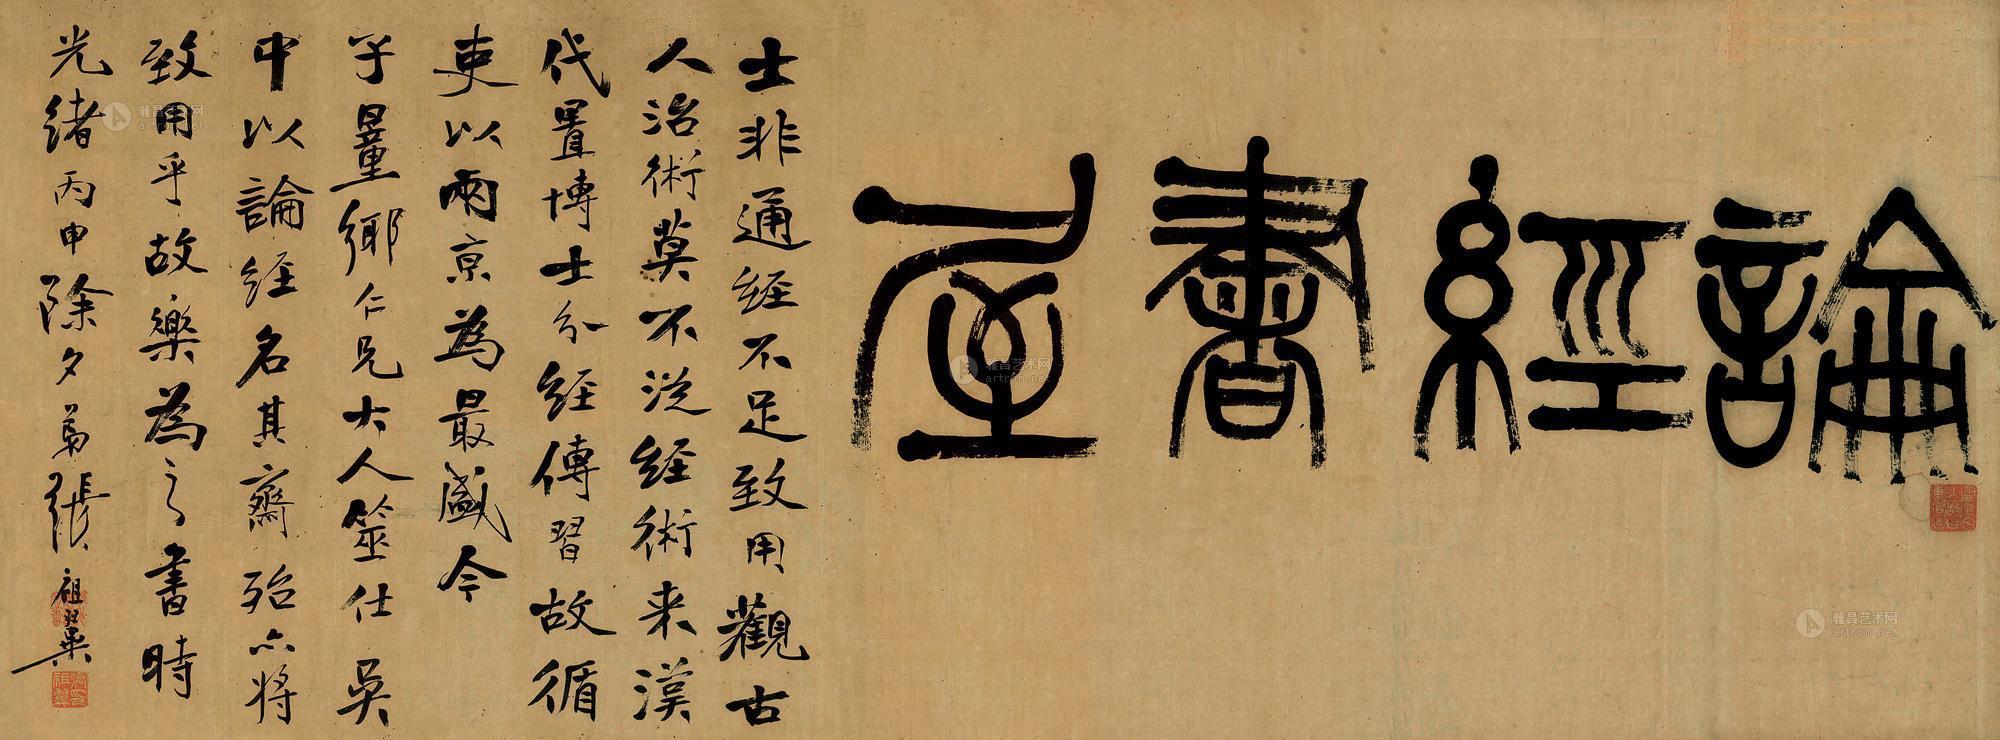 論經書屋
士非通經不足致用觀古
人治術莫不從經術来漢
代置博士分經傳習故循
吏以兩京為最盛今
子量鄉仁兄大人筮仕吳
中以論經名其齋殆亦將
致用乎故樂為之書時
光緒丙申除夕弟張祖翼
雅昌艺术网
artron.net
雅昌艺术网
artron.net
雅昌艺术网
artron.net